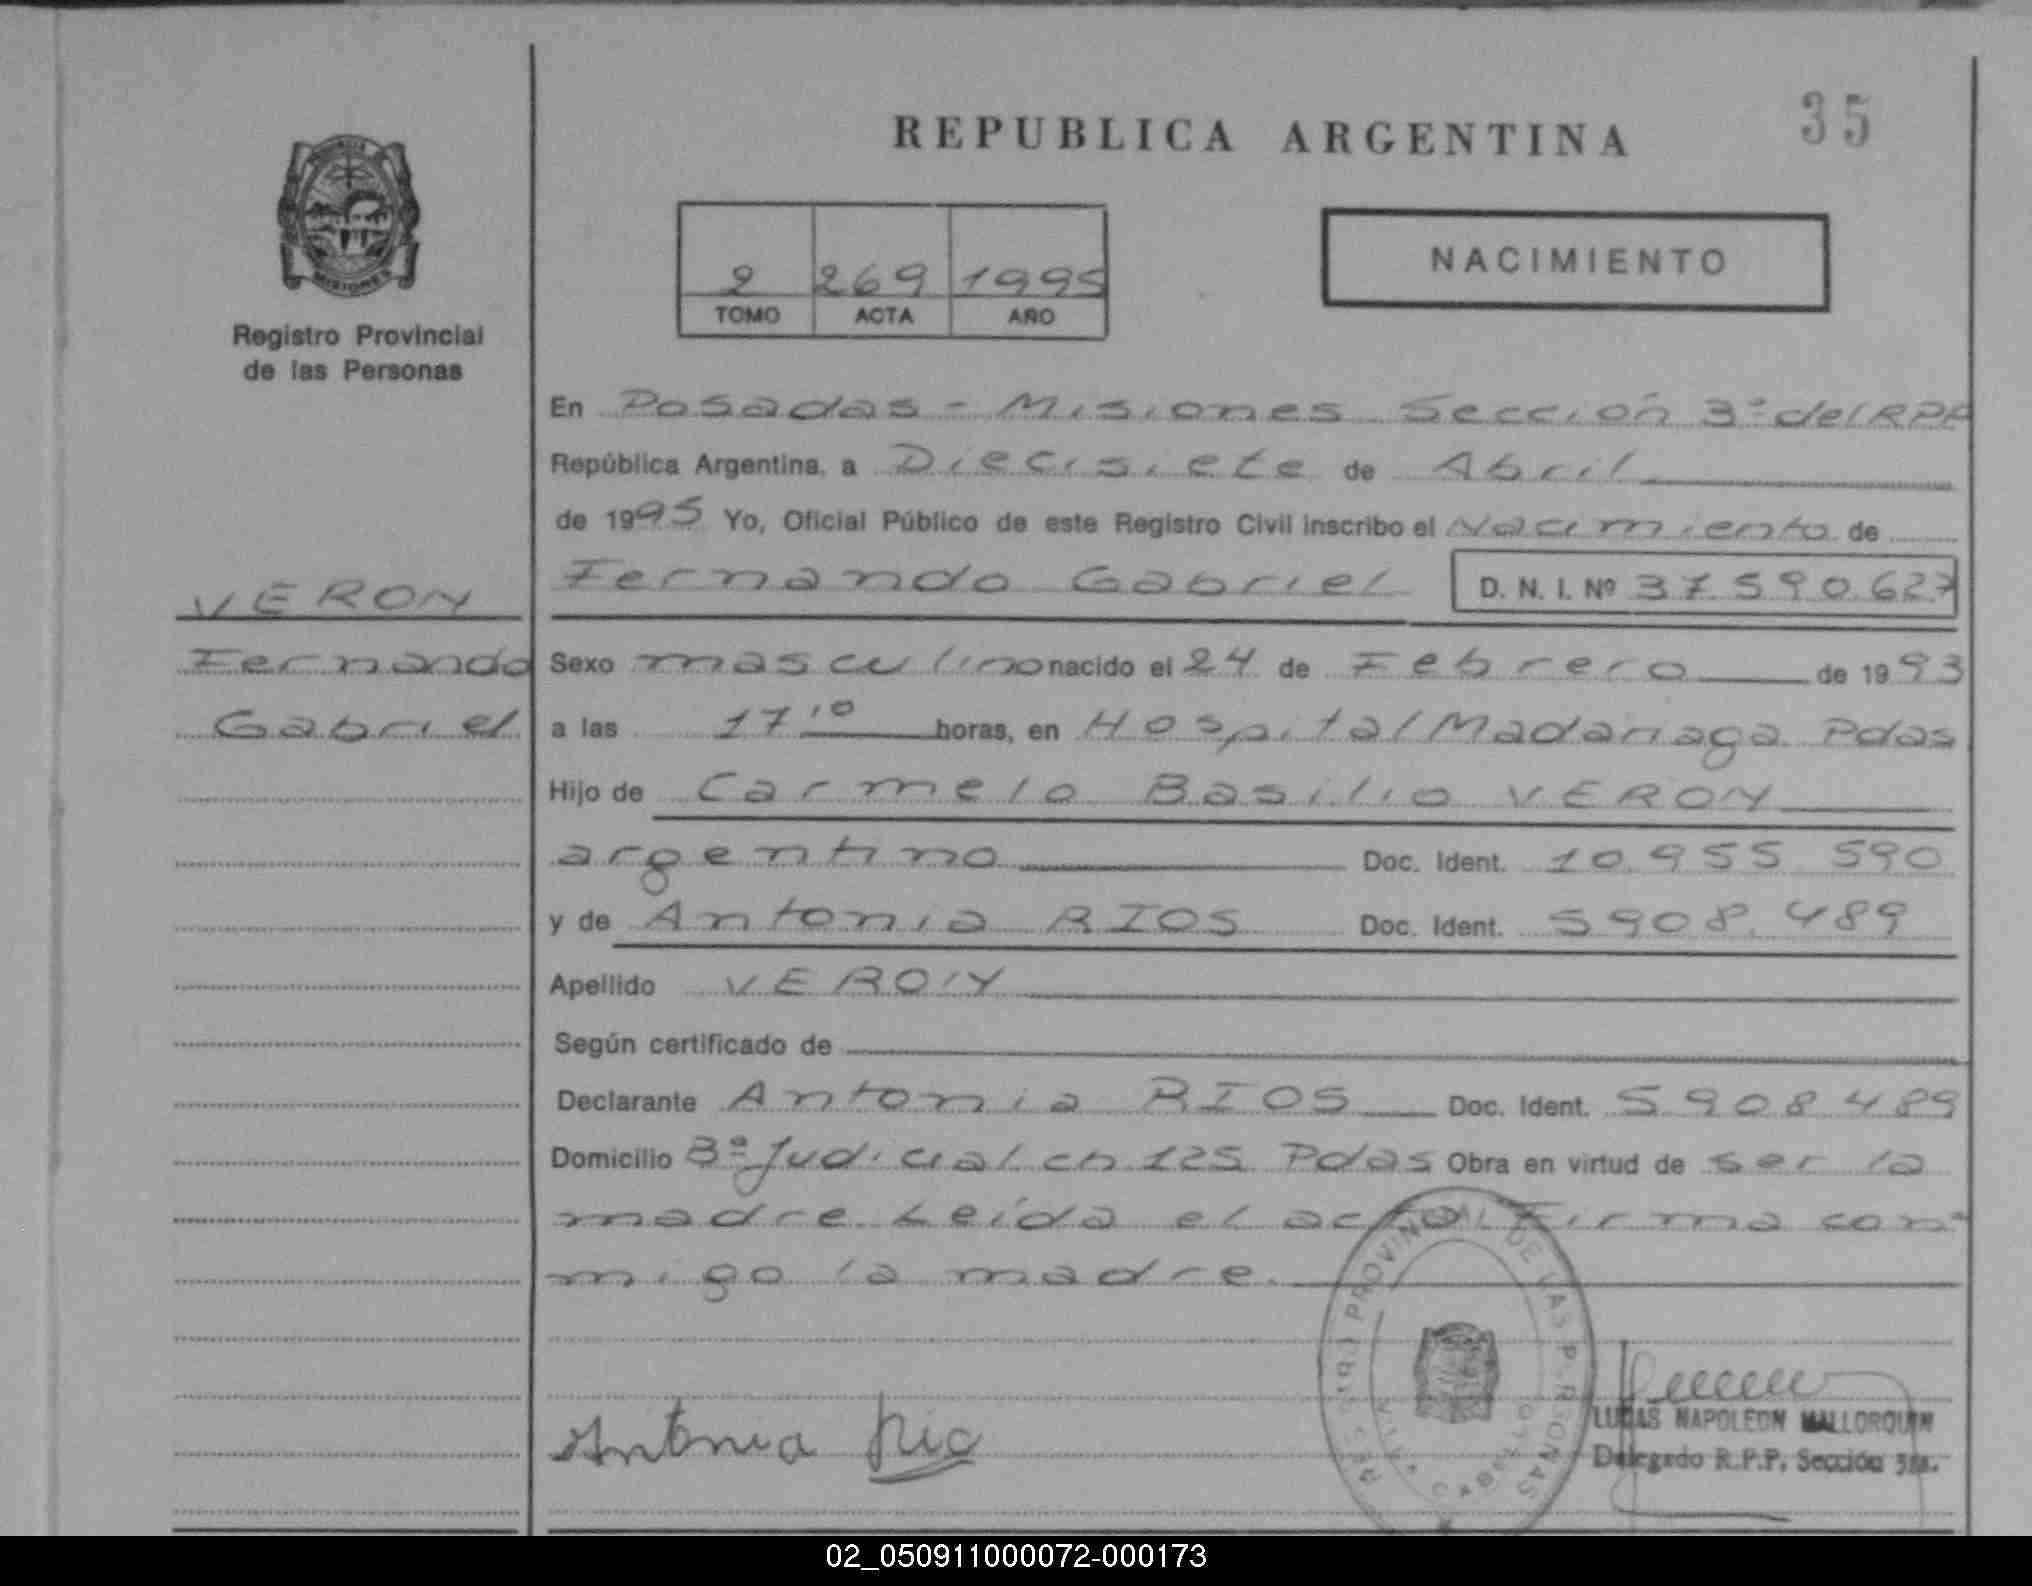 35
REPUBLICA ARGENTINA
NACIMIENTO
2 269 1995
TOMO ACTA AÑO
MISIONES
Registro Provincial
de las Personas
VERON
Fernando
Gabriel
En Posadas - Misiones Sección 3ª del RPP
República Argentina, a Diecisiete de Abril
de 1995 Yo, Oficial Público de este Registro Civil inscribo el Nacimiento de
Fernando Gabriel D. N. I. Nº 37.590.627
Sexo masculino nacido el 24 de Febrero de 1993
a las 17,10 horas, en Hospital Madariaga Pdas
Hijo de Carmelo Basilio VERON
argentino Doc. Ident. 10.955.590
y de Antonia RIOS Doc. Ident. 5908.489
Apellido VERON
Según certificado de
Declarante Antonia RIOS Doc. Ident. 5908489
Domicilio Bº Judicial ch 125 Pdas Obra en virtud de ser la
madre. Leída el acta Firma con-
migo la madre.
PROVINCIAL DE LAS PERSONAS
Antonia Rio
LUCAS NAPOLEON MALLORQUIN
Delegado R.P.P. Sección 3ra.
02_050911000072-000173